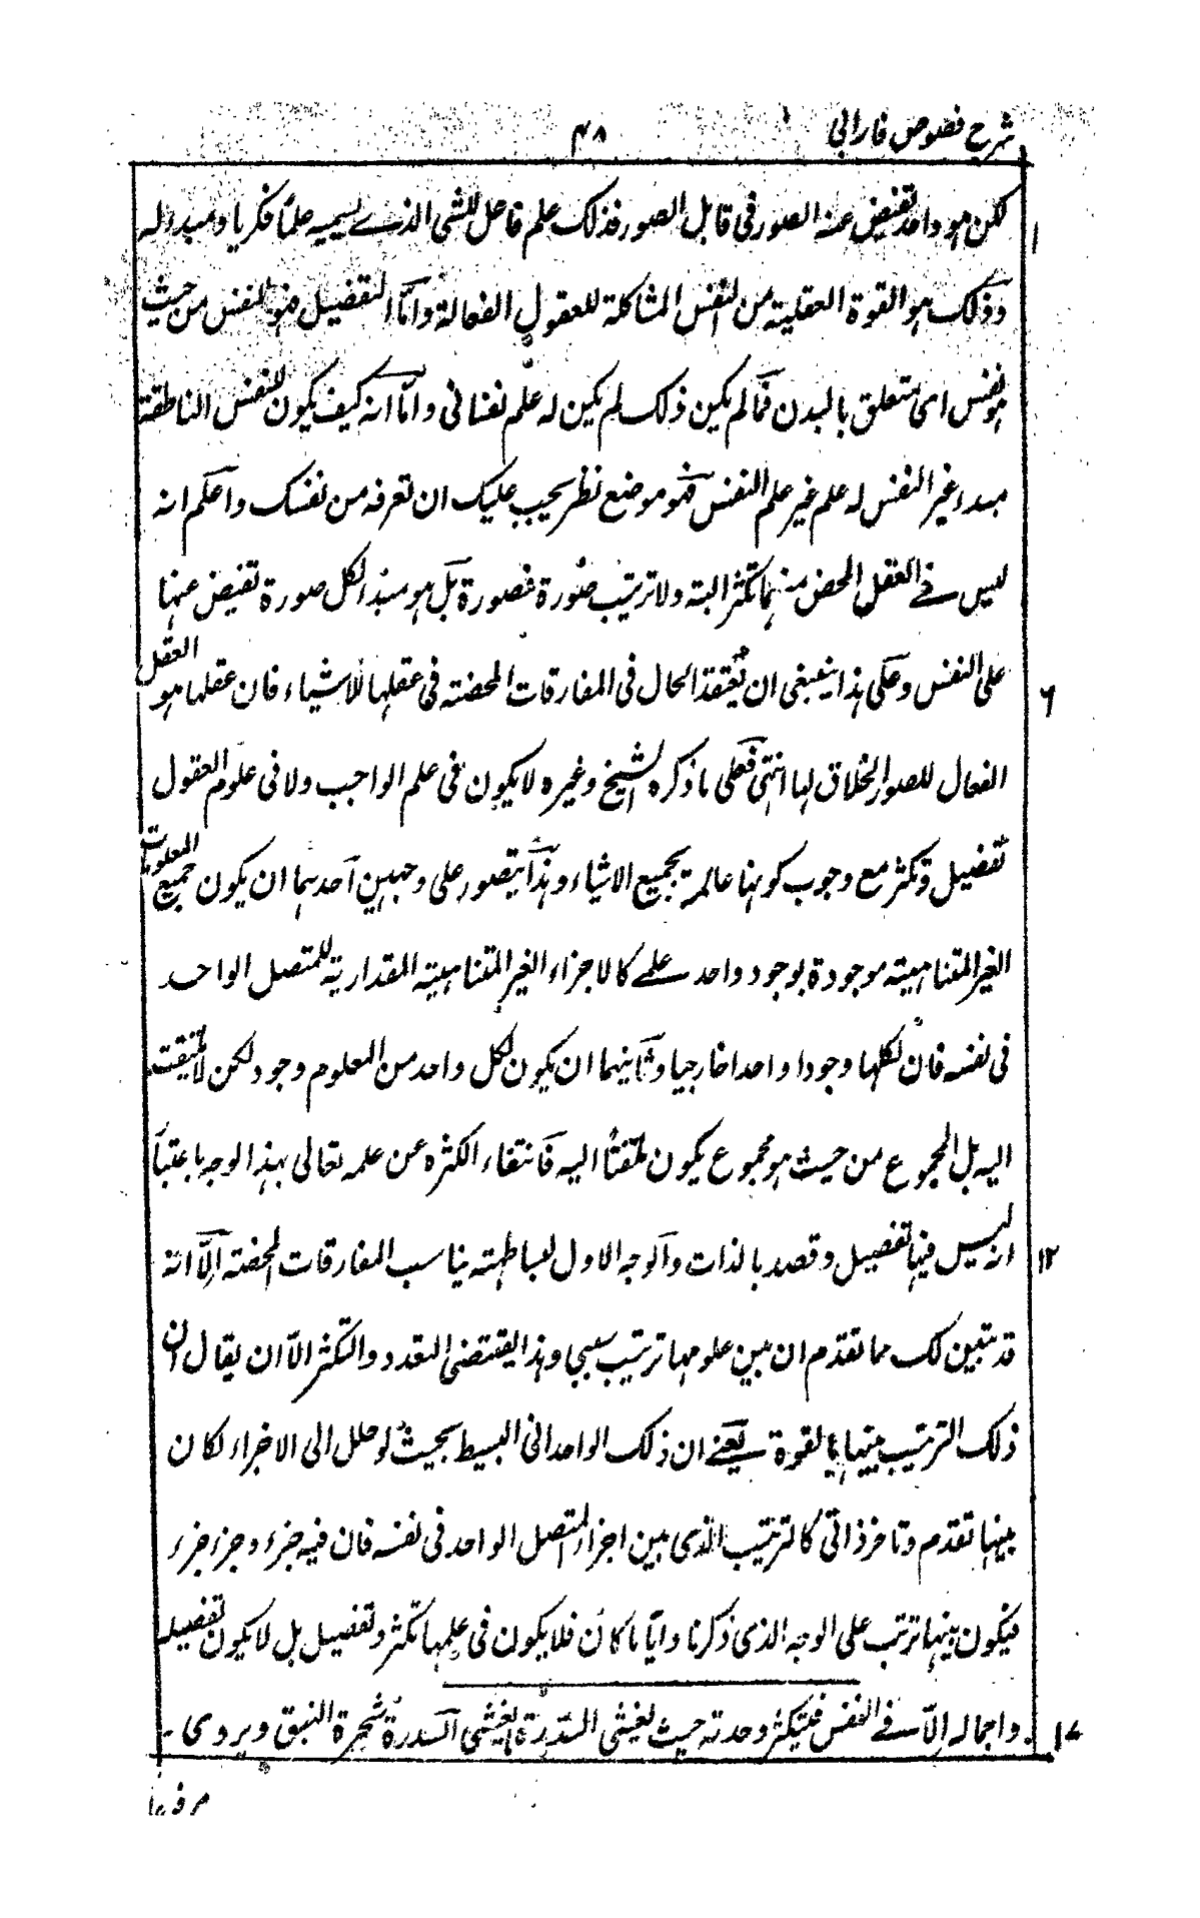 شرح فصوص فارابی ۴۸
لكن هو واحد تفيض عنه الصور فی قابل الصور فذلک علم فاعل للشی الذے یسمیه علمًا فکریا ومبدء له ۱
وذلک هو القوة العقلية من النفس المشاكلة للعقول الفعالة وامّا التفصيل فهو للنفس من حيث
هو نفس ای متعلق بالبدن فما لم یکن ذلک لم یکن له علم نفسانی وامّا انه کیف یکون للنفس الناطقة
مبدء غیر النفس له علم غیر علم النفس فهو موضع نظر یجب علیک ان تعرفه من نفسک واعلم انه
لیس فے العقل المحض منهما تکثر البتة ولا ترتیب صورة فصورة بل هو مبدء لکل صورة تفیض عنها
علی النفس وعلی هذا ینبغی ان تعتقد الحال فی المفارقات المحضة فی عقلها للاشیاء فان عقلها هو العقل ۶
الفعال للصور الخلاق لها انتهی فعلی ما ذکره الشیخ وغیره لا یکون فی علم الواجب ولا فی علوم العقول
تفصیل وتکثر مع وجوب کونها عالمة بجمیع الاشیاء وهذا یتصور علی وجهین احدهما ان یکون جمیع المعلومات
الغیر المتناهیة موجودة بوجود واحد علے کالاجزاء الغیر المتناهیة المقداریة للمتصل الواحد
فی نفسه فان لکلها وجودا واحدا خارجیا وثانیهما ان یکون لکل واحد من المعلوم وجود لکن لا یلتفت
الیه بل المجموع من حیث هو مجموع یکون ملتفتًا الیه فانتفاء الکثرة عن علمه تعالی بهذا الوجه باعتبار
انه لیس فیها تفصیل وقصد بالذات والوجه الاول لبساطته یناسب المفارقات المحضة الّا انه ۱۲
قد تبین لک مما تقدم ان بین علومها ترتیب سببی وهذا یقتضی التعدد والتکثر الّا ان یقال ان
ذلک الترتیب بینها بالقوة یعنے ان ذلک الواحدانی البسیط بحیث لو حلل الی الاجزاء لکان
بینها تقدم وتاخر ذاتی کالترتیب الذی بین اجزاء المتصل الواحد فی نفسه فان فیه جزء وجزء جزء
فیکون بینها ترتب علی الوجه الذی ذکرنا وایّا ما کان فلا یکون فی علمها تکثر وتفصیل بل لا یکون تفصیله
واجماله الّا فے النفس فیتکثر وحدته حیث یغشی السدرة ما یغشی السدرة شجرة النبق ویروی ۱۷